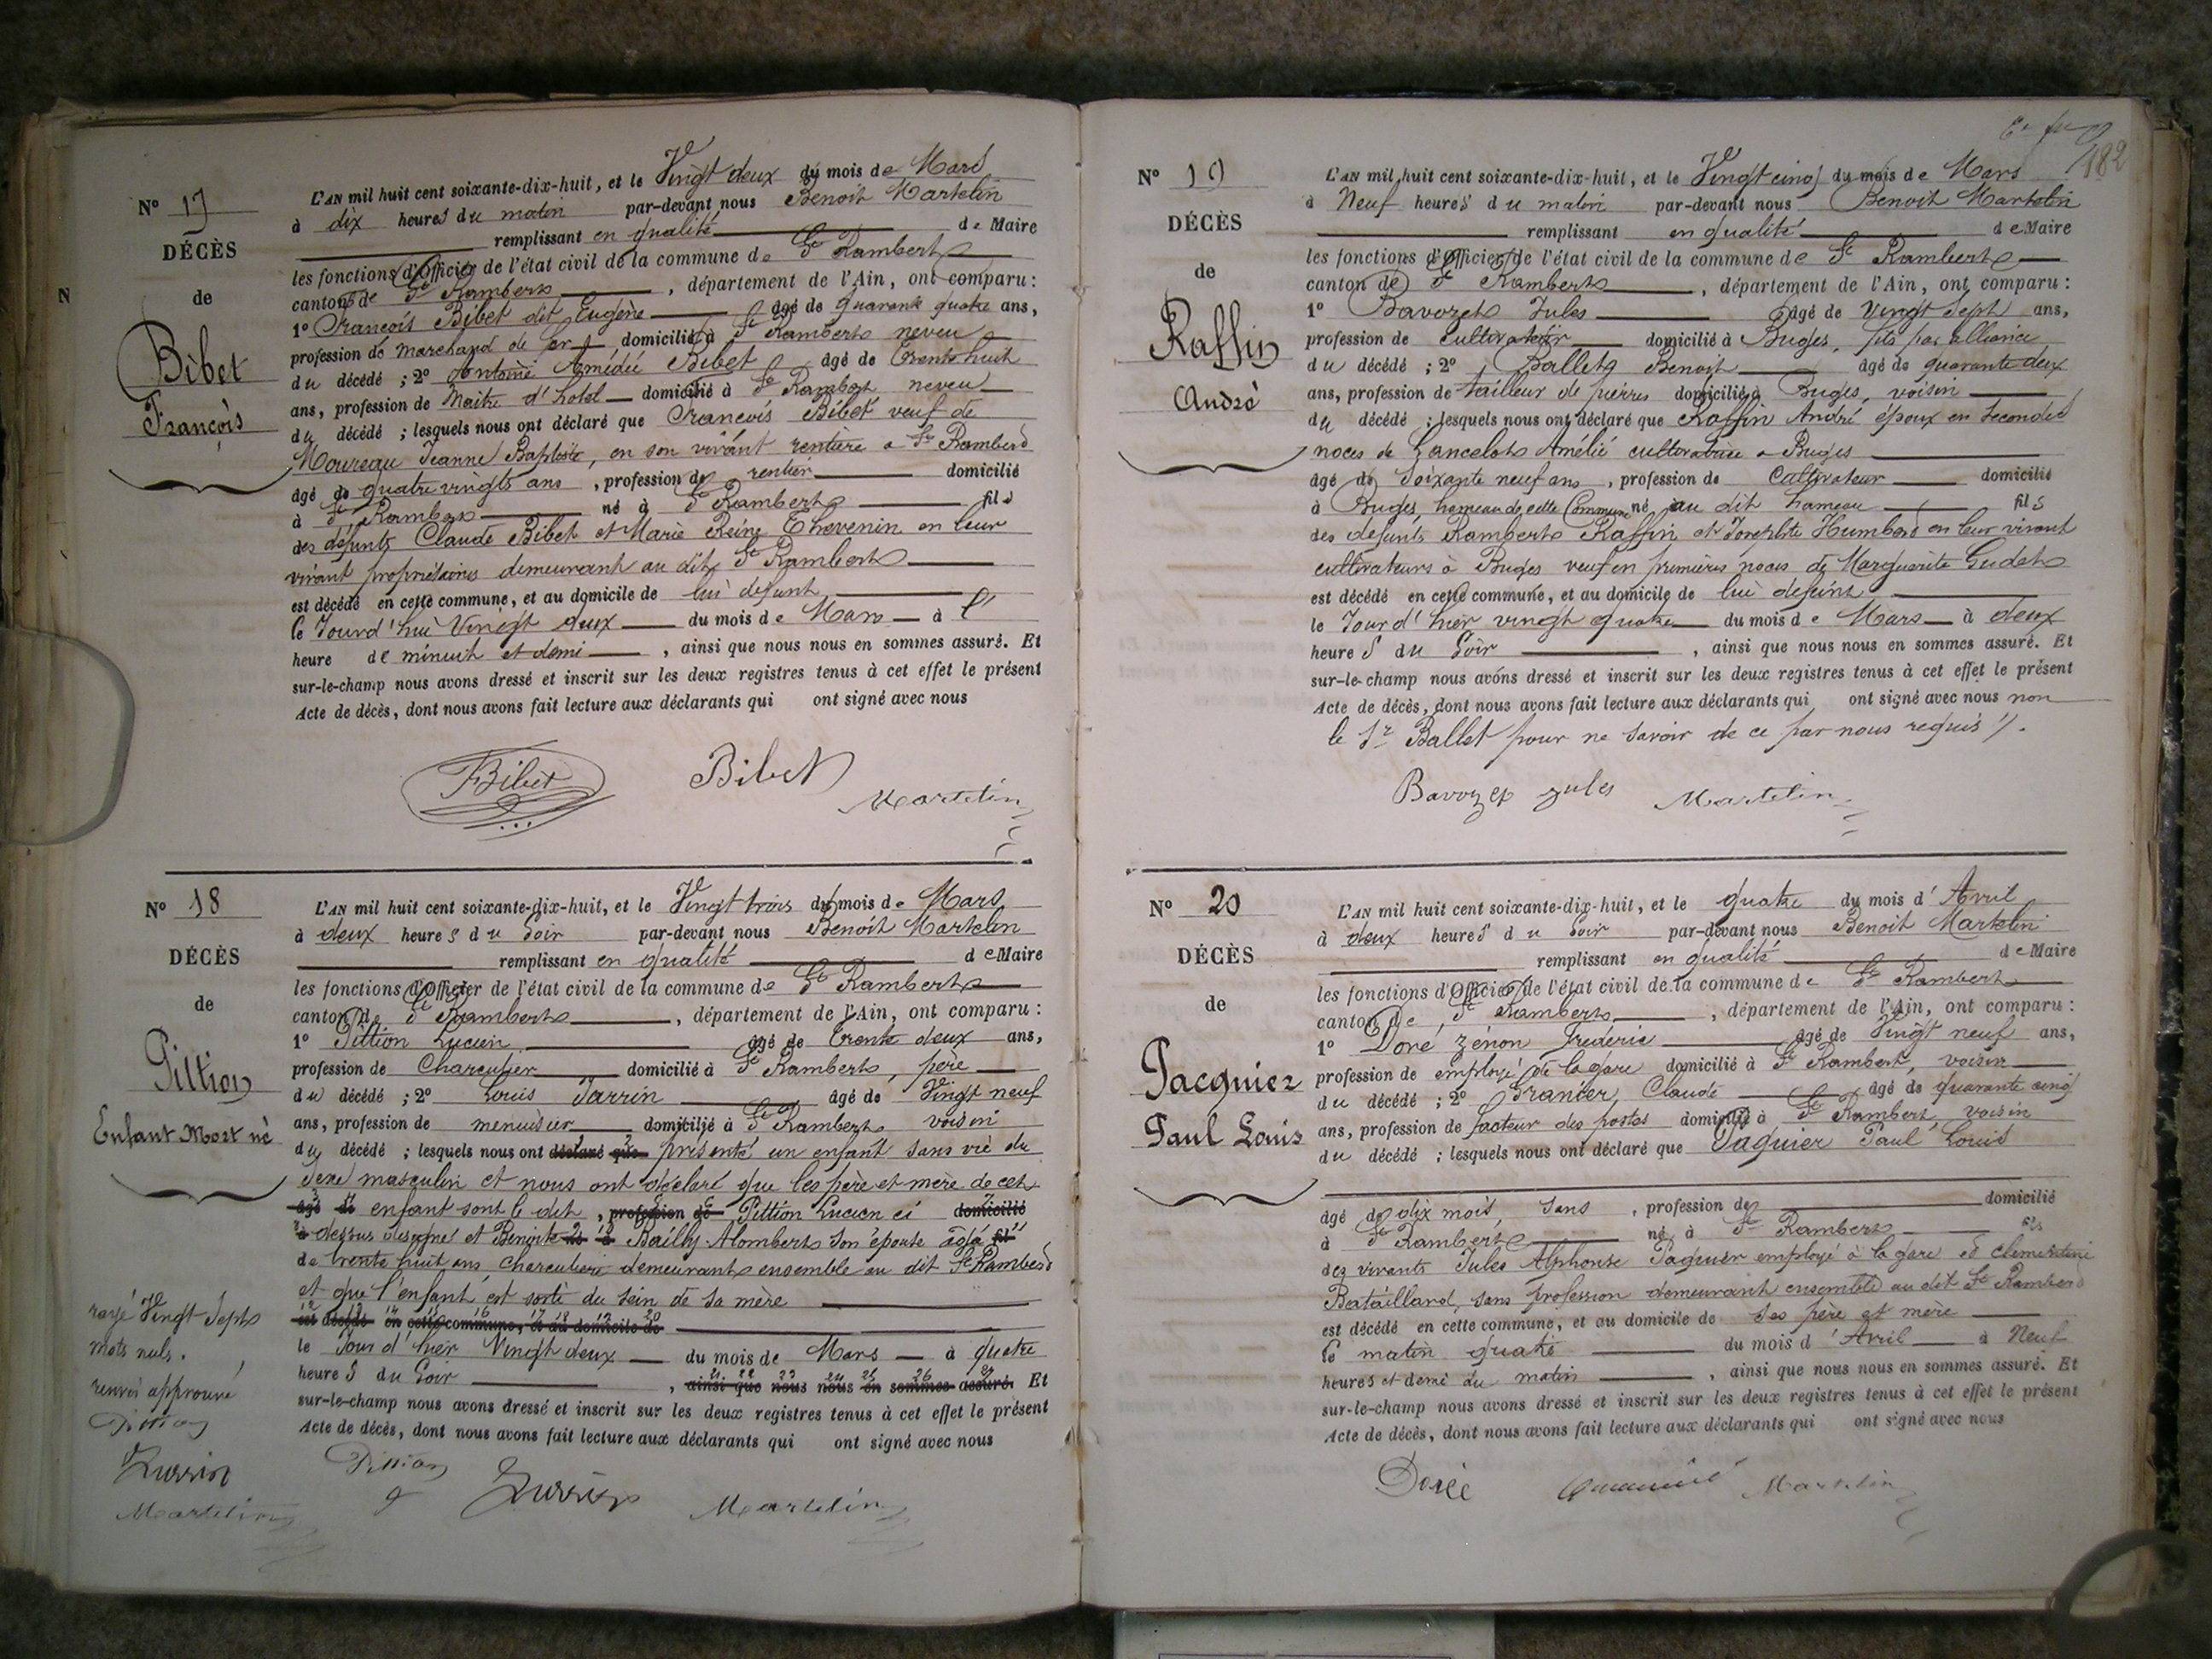 N
Nº 17
DÉCÈS
de
Bibet
François
L'AN mil huit cent soixante-dix-huit, et le Vingt deux du mois de Mars
à dix heures du matin par-devant nous Benoit Martelin
remplissant en qualité de Maire
les fonctions d'Officier de l'état civil de la commune de St Rambert
canton de St Rambert, département de l'Ain, ont comparu :
1º François Bibet dit Eugène âgé de quarante quatre ans,
profession de marchand de fer domicilié à St Rambert neveu
du décédé ; 2º Antoine Amédée Bibet âgé de trente huit
ans, profession de Maitre d'hotel domicilié à St Rambert neveu
du décédé ; lesquels nous ont déclaré que François Bibet veuf de
Moureau Jeanne Baptiste, en son vivant rentière a St Rambert
âgé de quatre vingts ans, profession de rentier domicilié
à St Rambert né à St Rambert fils
des défunts Claude Bibet et Marie Reine Thevenin en leur
vivant propriétaires demeurant au dit St Rambert
est décédé en cette commune, et au domicile de lui defunt
le Jourd'hui Vingt deux du mois de Mars à l'
heure de minuit et demi, ainsi que nous nous en sommes assuré. Et
sur-le-champ nous avons dressé et inscrit sur les deux registres tenus à cet effet le présent
Acte de décès, dont nous avons fait lecture aux déclarants qui ont signé avec nous
Bibet Bibet Martelin
Nº 18
DÉCÈS
de
Pittion
Enfant Mort né
L'AN mil huit cent soixante-dix-huit, et le Vingt trois du mois de Mars
à deux heures du soir par-devant nous Benoit Martelin
remplissant en qualité de Maire
les fonctions d'Officier de l'état civil de la commune de St Rambert
canton de St Rambert, département de l'Ain, ont comparu :
1º Pittion Lucien âgé de trente deux ans,
profession de Charcutier domicilié à St Rambert, père
du décédé ; 2º Louis Jarrin âgé de Vingt neuf
ans, profession de menuisier domicilié à St Rambert voisin
du décédé ; lesquels nous ont déclaré que présenté un enfant sans vie du
sexe masculin et nous ont déclaré que les père et mère de cet
âgé de enfant sont le dit, profession de Pittion Lucien ci domicilié
à dessus désigné et Benoite né à Bailly Alombert son épouse âgée fil
de trente huit ans charcutière demeurant ensemble au dit St Rambert
et que l'enfant est sorti du sein de sa mère
est décédé en cette commune, et au domicile de
le Jour d'hier Vingt deux du mois de Mars à quatre
heures du Soir, ainsi que nous nous en sommes assuré. Et
sur-le-champ nous avons dressé et inscrit sur les deux registres tenus à cet effet le présent
Acte de décès, dont nous avons fait lecture aux déclarants qui ont signé avec nous
Pittion Martelin
rayé Vingt Sept
mots nuls.
renvoi approuvé
Pittion
Martelin
182
Nº 19
DÉCÈS
de
Raffin
André
L'AN mil huit cent soixante-dix-huit, et le Vingt cinq du mois de Mars
à Neuf heures du matin par-devant nous Benoit Martelin
remplissant en qualité de Maire
les fonctions d'Officier de l'état civil de la commune de St Rambert
canton de St Rambert, département de l'Ain, ont comparu :
1º Bavozet Jules âgé de Vingt Sept ans,
profession de Cultivateur domicilié à Buges, fils par alliance
du décédé ; 2º Ballet Benoit âgé de quarante deux
ans, profession de tailleur de pierres domicilié à Buges, voisin
du décédé ; lesquels nous ont déclaré que Raffin André époux en secondes
noces de Lancelot Amélie cultivatrice a Buges
âgé de Soixante neuf ans, profession de Cultivateur domicilié
à Buges, hameau de cette Commune né au dit hameau fils
des defunts Rambert Raffin et Josephte Humbert en leur vivant
cultivateurs à Buges veuf en premières noces de Marguerite Gudet
est décédé en cette commune, et au domicile de lui defunt
le Jour d'hier vingt quatre du mois de Mars à deux
heures du Soir, ainsi que nous nous en sommes assuré. Et
sur-le-champ nous avons dressé et inscrit sur les deux registres tenus à cet effet le présent
Acte de décès, dont nous avons fait lecture aux déclarants qui ont signé avec nous non
le Sr Ballet pour ne savoir de ce par nous requis /.
Bavozet Jules Martelin
Nº 20
DÉCÈS
de
Jacquier
Paul Louis
L'AN mil huit cent soixante-dix-huit, et le quatre du mois d'Avril
à deux heures du soir par-devant nous Benoit Martelin
remplissant en qualité de Maire
les fonctions d'Officier de l'état civil de la commune de St Rambert
canton de St Rambert, département de l'Ain, ont comparu :
1º Doré Zénon Frédéric âgé de Vingt neuf ans,
profession de employé de la gare domicilié à St Rambert, voisin
du décédé ; 2º Granier Claude âgé de quarante cinq
ans, profession de facteur des postes domicilié à St Rambert, voisin
du décédé ; lesquels nous ont déclaré que Jaquier Paul Louis
âgé de dix mois, Sans, profession de domicilié
à St Rambert né à St Rambert fils
des vivants Jules Alphonse Jaquier employé à la gare et clementine
Beatailland, sans profession demeurant ensemble au dit St Rambert
est décédé en cette commune, et au domicile de ses père et mère
le matin quatre du mois d'Avril à Neuf
heures et demi du matin, ainsi que nous nous en sommes assuré. Et
sur-le-champ nous avons dressé et inscrit sur les deux registres tenus à cet effet le présent
Acte de décès, dont nous avons fait lecture aux déclarants qui ont signé avec nous
Doré Martelin